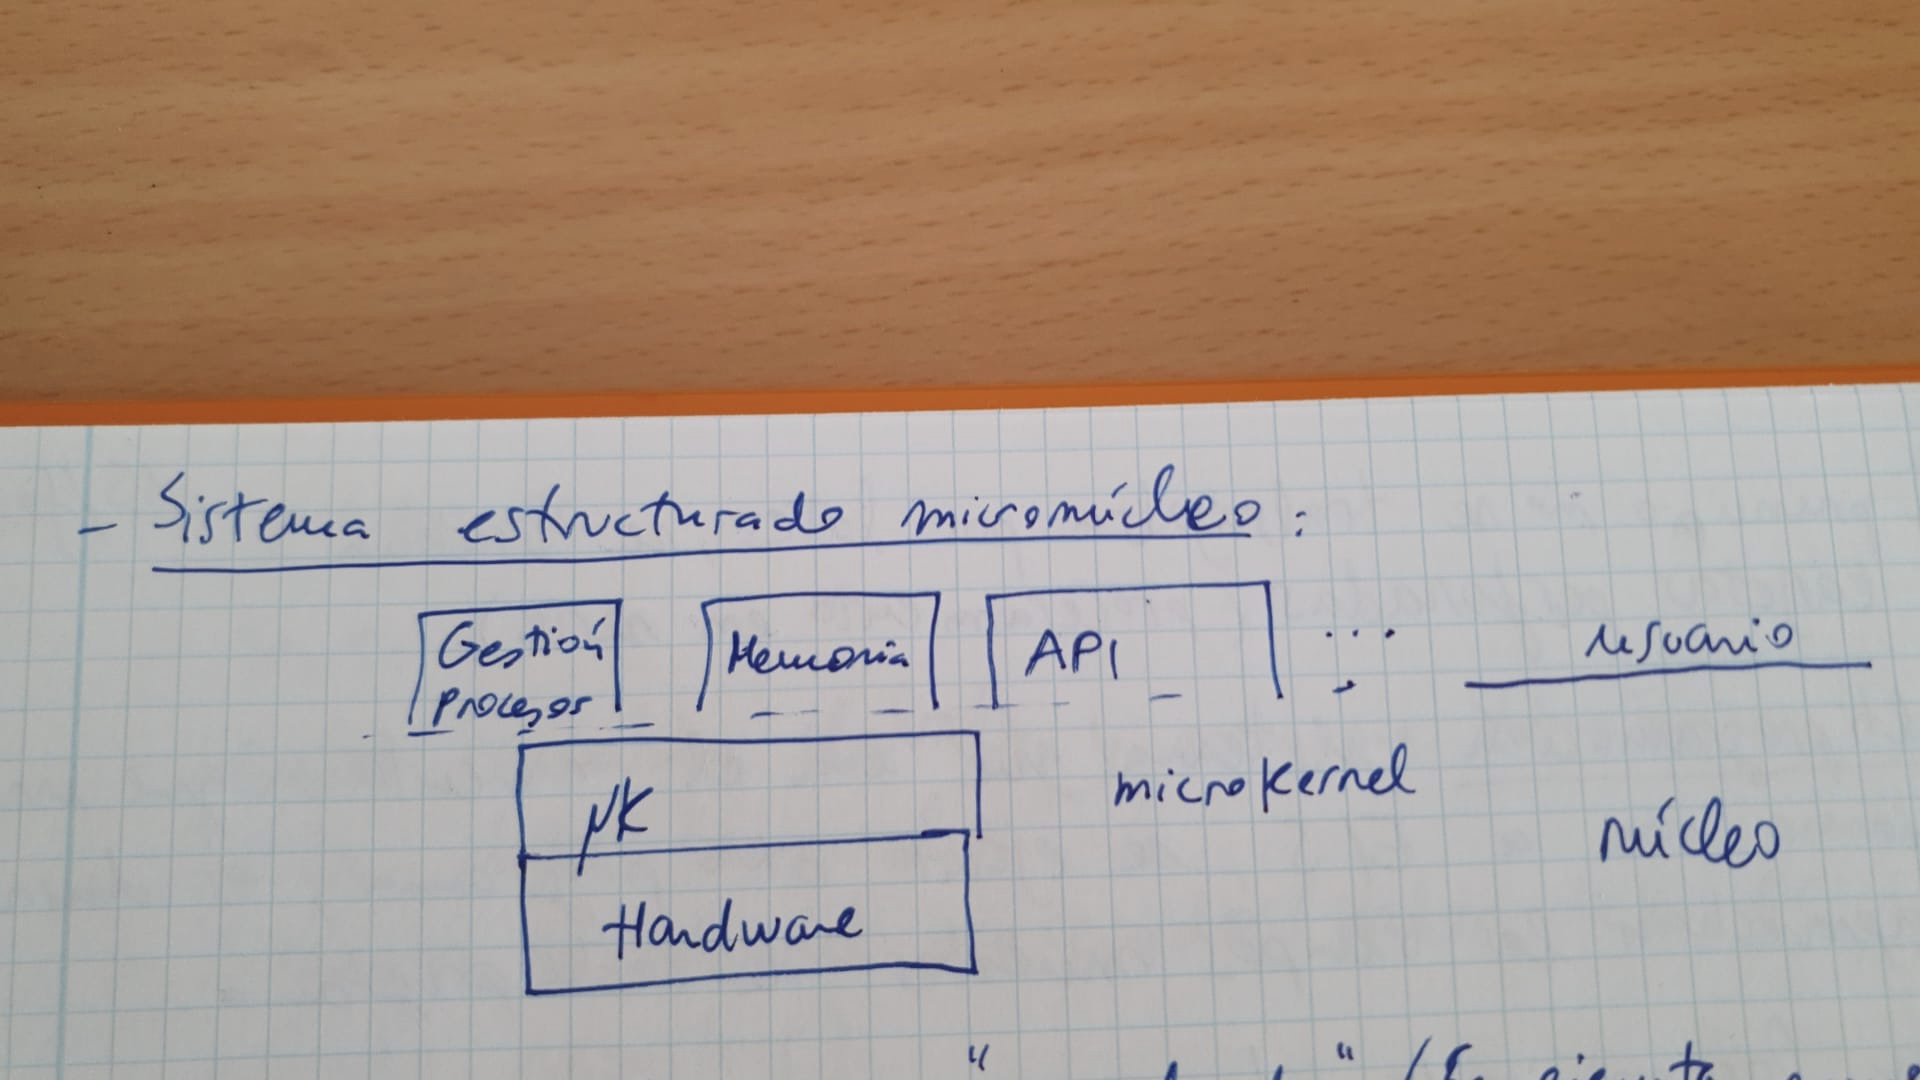 - Sistema estructurado micronúcleo:
Gestión Procesos
Memoria
API
...
usuario
μK
microkernel
núcleo
Hardware